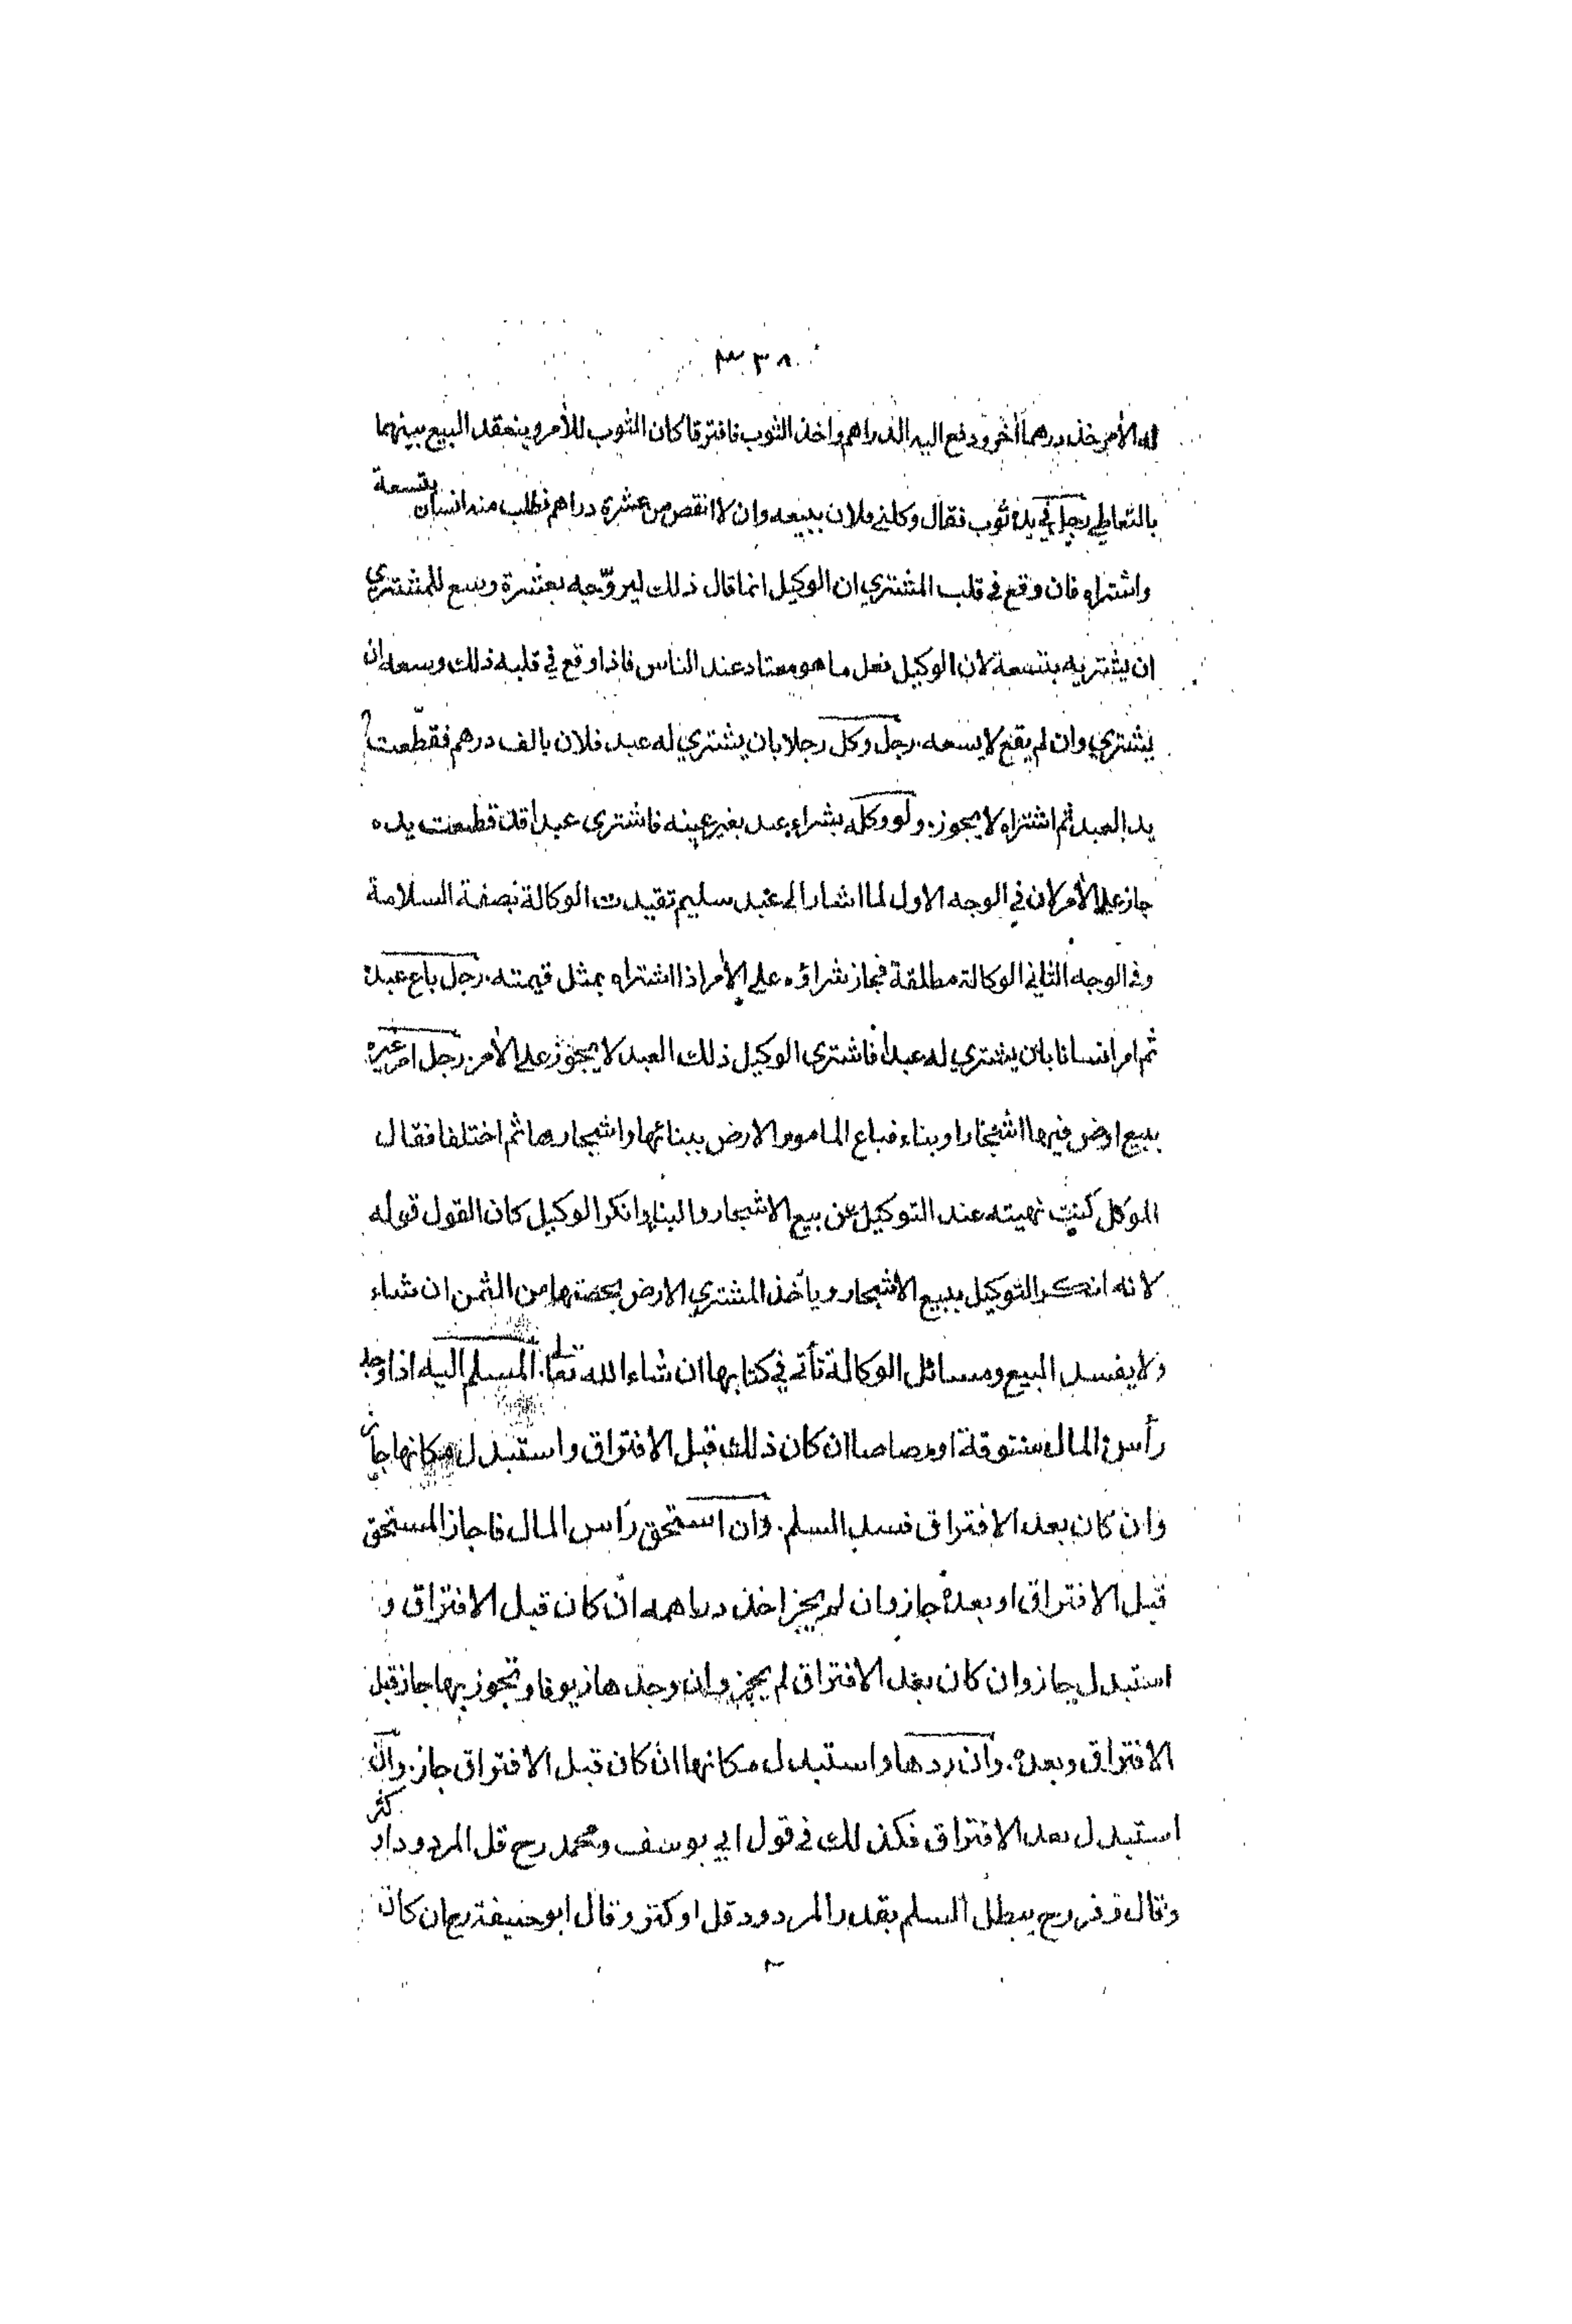 ٣٣٨
له الآمر خذ درهما آخر ودفع اليه الدراهم واخذ الثوب فافترقا كان الثوب للآمر وينعقد البيع بينهما
بالتعاطي رجل في يده ثوب فقال وكلني فلان ببيعه وان لا انقص من عشرة دراهم فطلب منه انسان بتسعة
واشتراه فان وقع في قلب المشتري ان الوكيل انما قال ذلك ليروّجه بعشرة وسع للمشتري
ان يشتريه بتسعة لان الوكيل فعل ما هو معتاد عند الناس فاذا وقع في قلبه ذلك وسعه ان
يشتري وان لم يقع لا يسعه . رجل وكل رجلا بان يشتري له عبد فلان بالف درهم فقطعت
يد العبد ثم اشتراه لا يجوز . ولو وكله بشراء عبد بغير عينه فاشترى عبدا قد قطعت يده
جاز على الآمر لان في الوجه الاول لما اشار الى عبد سليم تقيدت الوكالة بصفة السلامة
وفي الوجه الثاني الوكالة مطلقة فجاز شراؤه على الآمر اذا اشتراه بمثل قيمته . رجل باع عبده
ثم امر انسانا بان يشتري له عبدا فاشترى الوكيل ذلك العبد لا يجوز على الآمر . رجل امر غيره
ببيع ارض فيها اشجار او بناء فباع المامور الارض ببنائها واشجارها ثم اختلفا فقال
الموكل كنت نهيته عند التوكيل عن بيع الاشجار والبناء وانكر الوكيل كان القول قوله
لانه انكر التوكيل ببيع الاشجار وياخذ المشتري الارض بحصتها من الثمن ان شاء
ولا يفسد البيع ومسائل الوكالة تأتي في كتابها ان شاء الله تعالى . المسلم اليه اذا وجد
رأس المال ستوقة او رصاصا ان كان ذلك قبل الافتراق واستبدل مكانها جاز
وان كان بعد الافتراق فسد السلم . وان استحق رأس المال فاجاز المستحق
قبل الافتراق او بعده جاز وان لم يجز اخذ دراهمه ان كان قبل الافتراق و
استبدل جاز وان كان بعد الافتراق لم يجز وان وجدها زيوفا وتجوز بها جاز قبل
الافتراق وبعده . وان ردها واستبدل مكانها ان كان قبل الافتراق جاز . وان
استبدل بعد الافتراق فكذلك في قول ابي يوسف ومحمد رح قل المردود او كثر
وقال زفر رح يبطل السلم بقدر المردود قل او كثر وقال ابو حنيفة رح ان كان